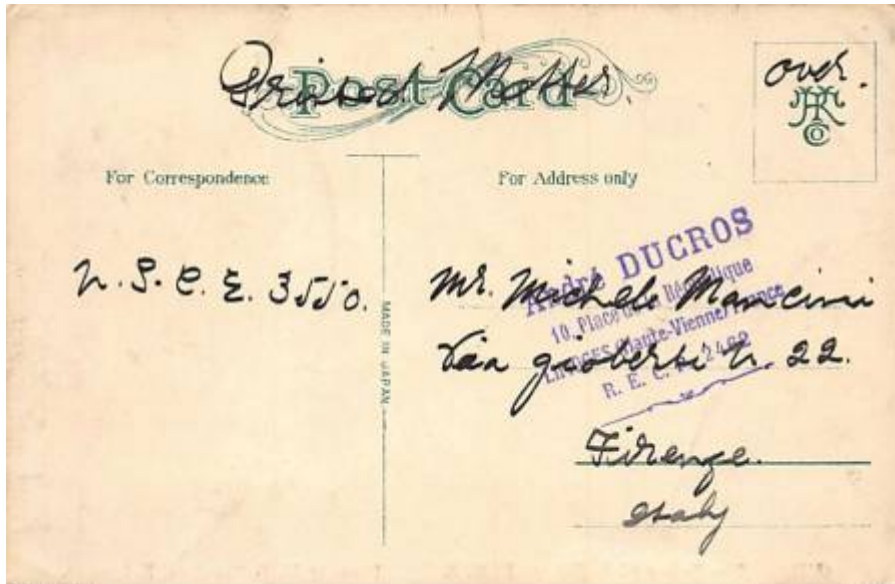 Post Card
Printed Matter.
over.
HRT Co
For Correspondence
For Address only
MADE IN JAPAN
N. S. C. E. 3550.
André DUCROS
10, Place de la République
LIMOGES (Haute-Vienne) France
R. E. C. 2462
Mr. Michele Mancini
Via gioberti N. 22.
Firenze.
Italy